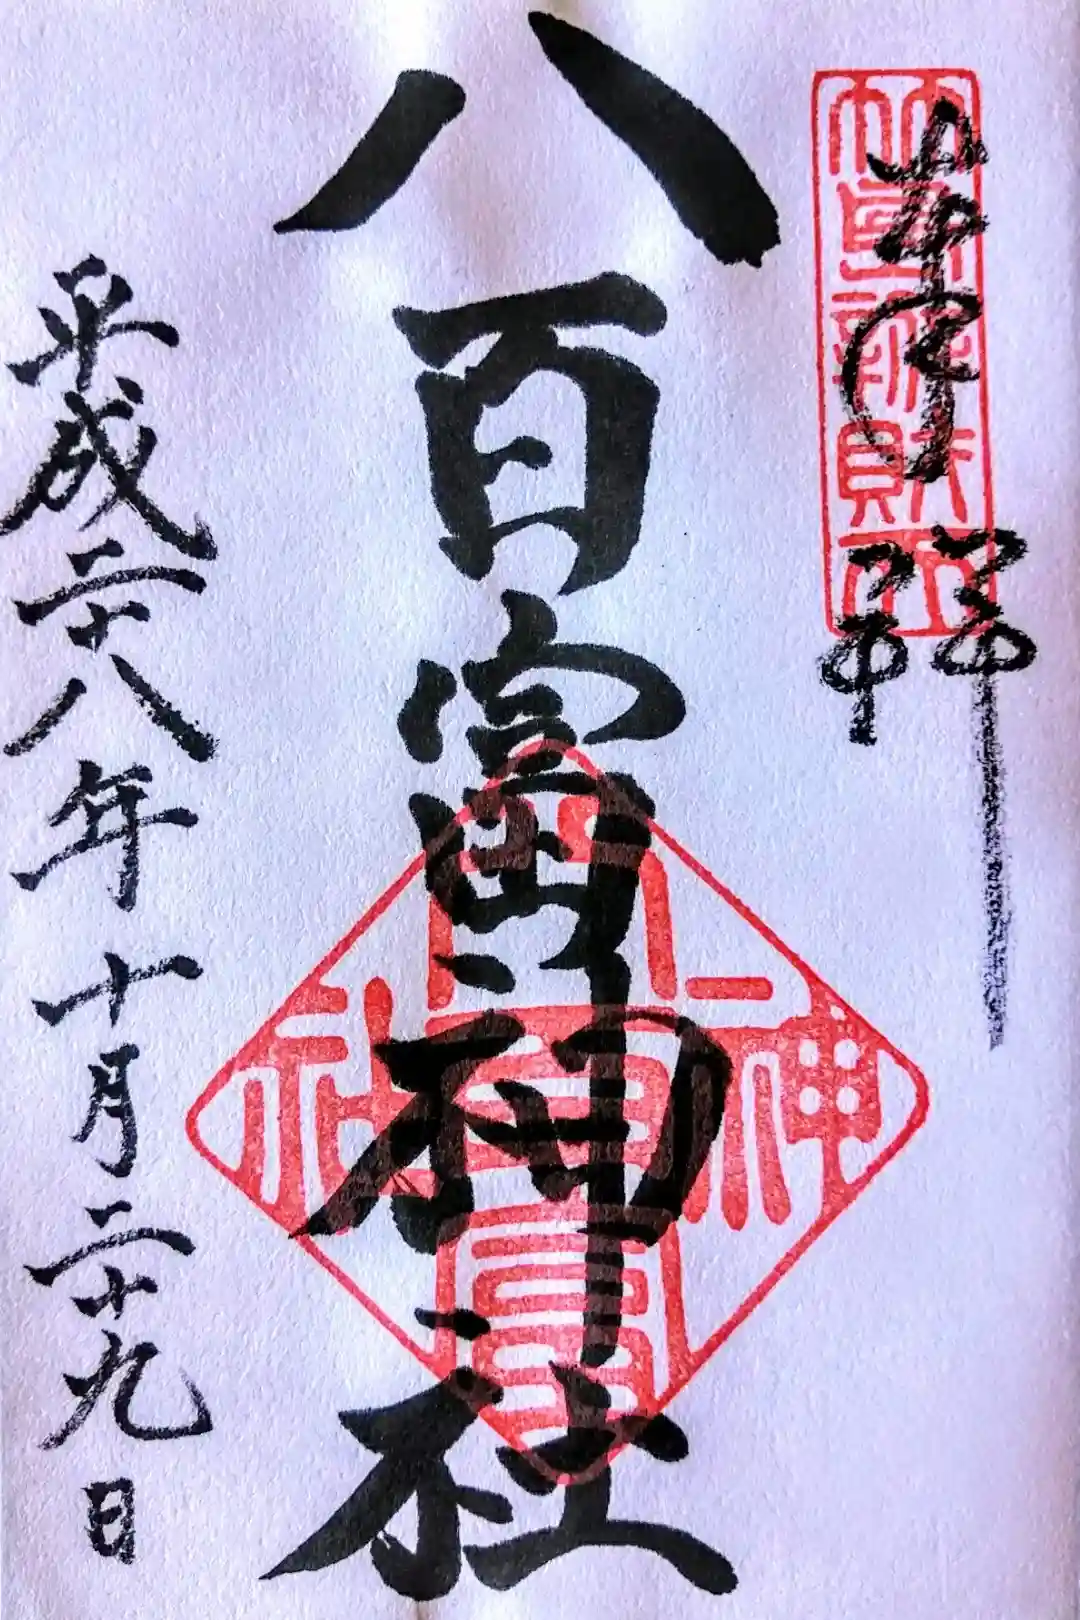 奉拝
竹島辨財天
八百富神社
八百富神社
平成二十八年十月二十九日